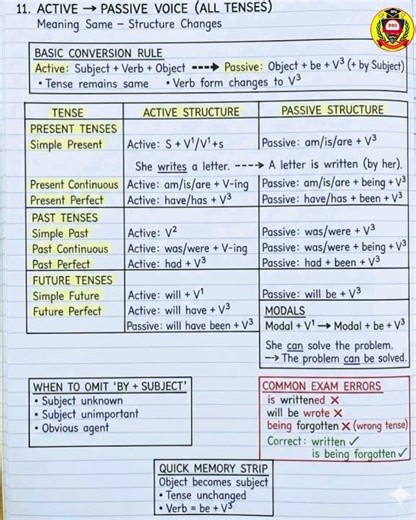 11. ACTIVE → PASSIVE VOICE (ALL TENSES)
Meaning Same – Structure Changes
BASIC CONVERSION RULE
Active: Subject + Verb + Object ----→ Passive: Object + be + V³ (+ by Subject)
• Tense remains same • Verb form changes to V³
TENSE ACTIVE STRUCTURE PASSIVE STRUCTURE
PRESENT TENSES
Simple Present Active: S + V¹/V¹+s Passive: am/is/are + V³
She writes a letter. ----→ A letter is written (by her).
Present Continuous Active: am/is/are + V-ing Passive: am/is/are + being + V³
Present Perfect Active: have/has + V³ Passive: have/has + been + V³
PAST TENSES
Simple Past Active: V² Passive: was/were + V³
Past Continuous Active: was/were + V-ing Passive: was/were + being + V³
Past Perfect Active: had + V³ Passive: had + been + V³
FUTURE TENSES
Simple Future Active: will + V¹ Passive: will be + V³
Future Perfect Active: will have + V³
Passive: will have been + V³
MODALS
Modal + V¹ → Modal + be + V³
She can solve the problem.
--→ The problem can be solved.
WHEN TO OMIT 'BY + SUBJECT'
• Subject unknown
• Subject unimportant
• Obvious agent
COMMON EXAM ERRORS
is writtened ✗
will be wrote ✗
being forgotten ✗ (wrong tense)
Correct: written ✓
is being forgotten ✓
QUICK MEMORY STRIP
Object becomes subject
• Tense unchanged
• Verb = be + V³